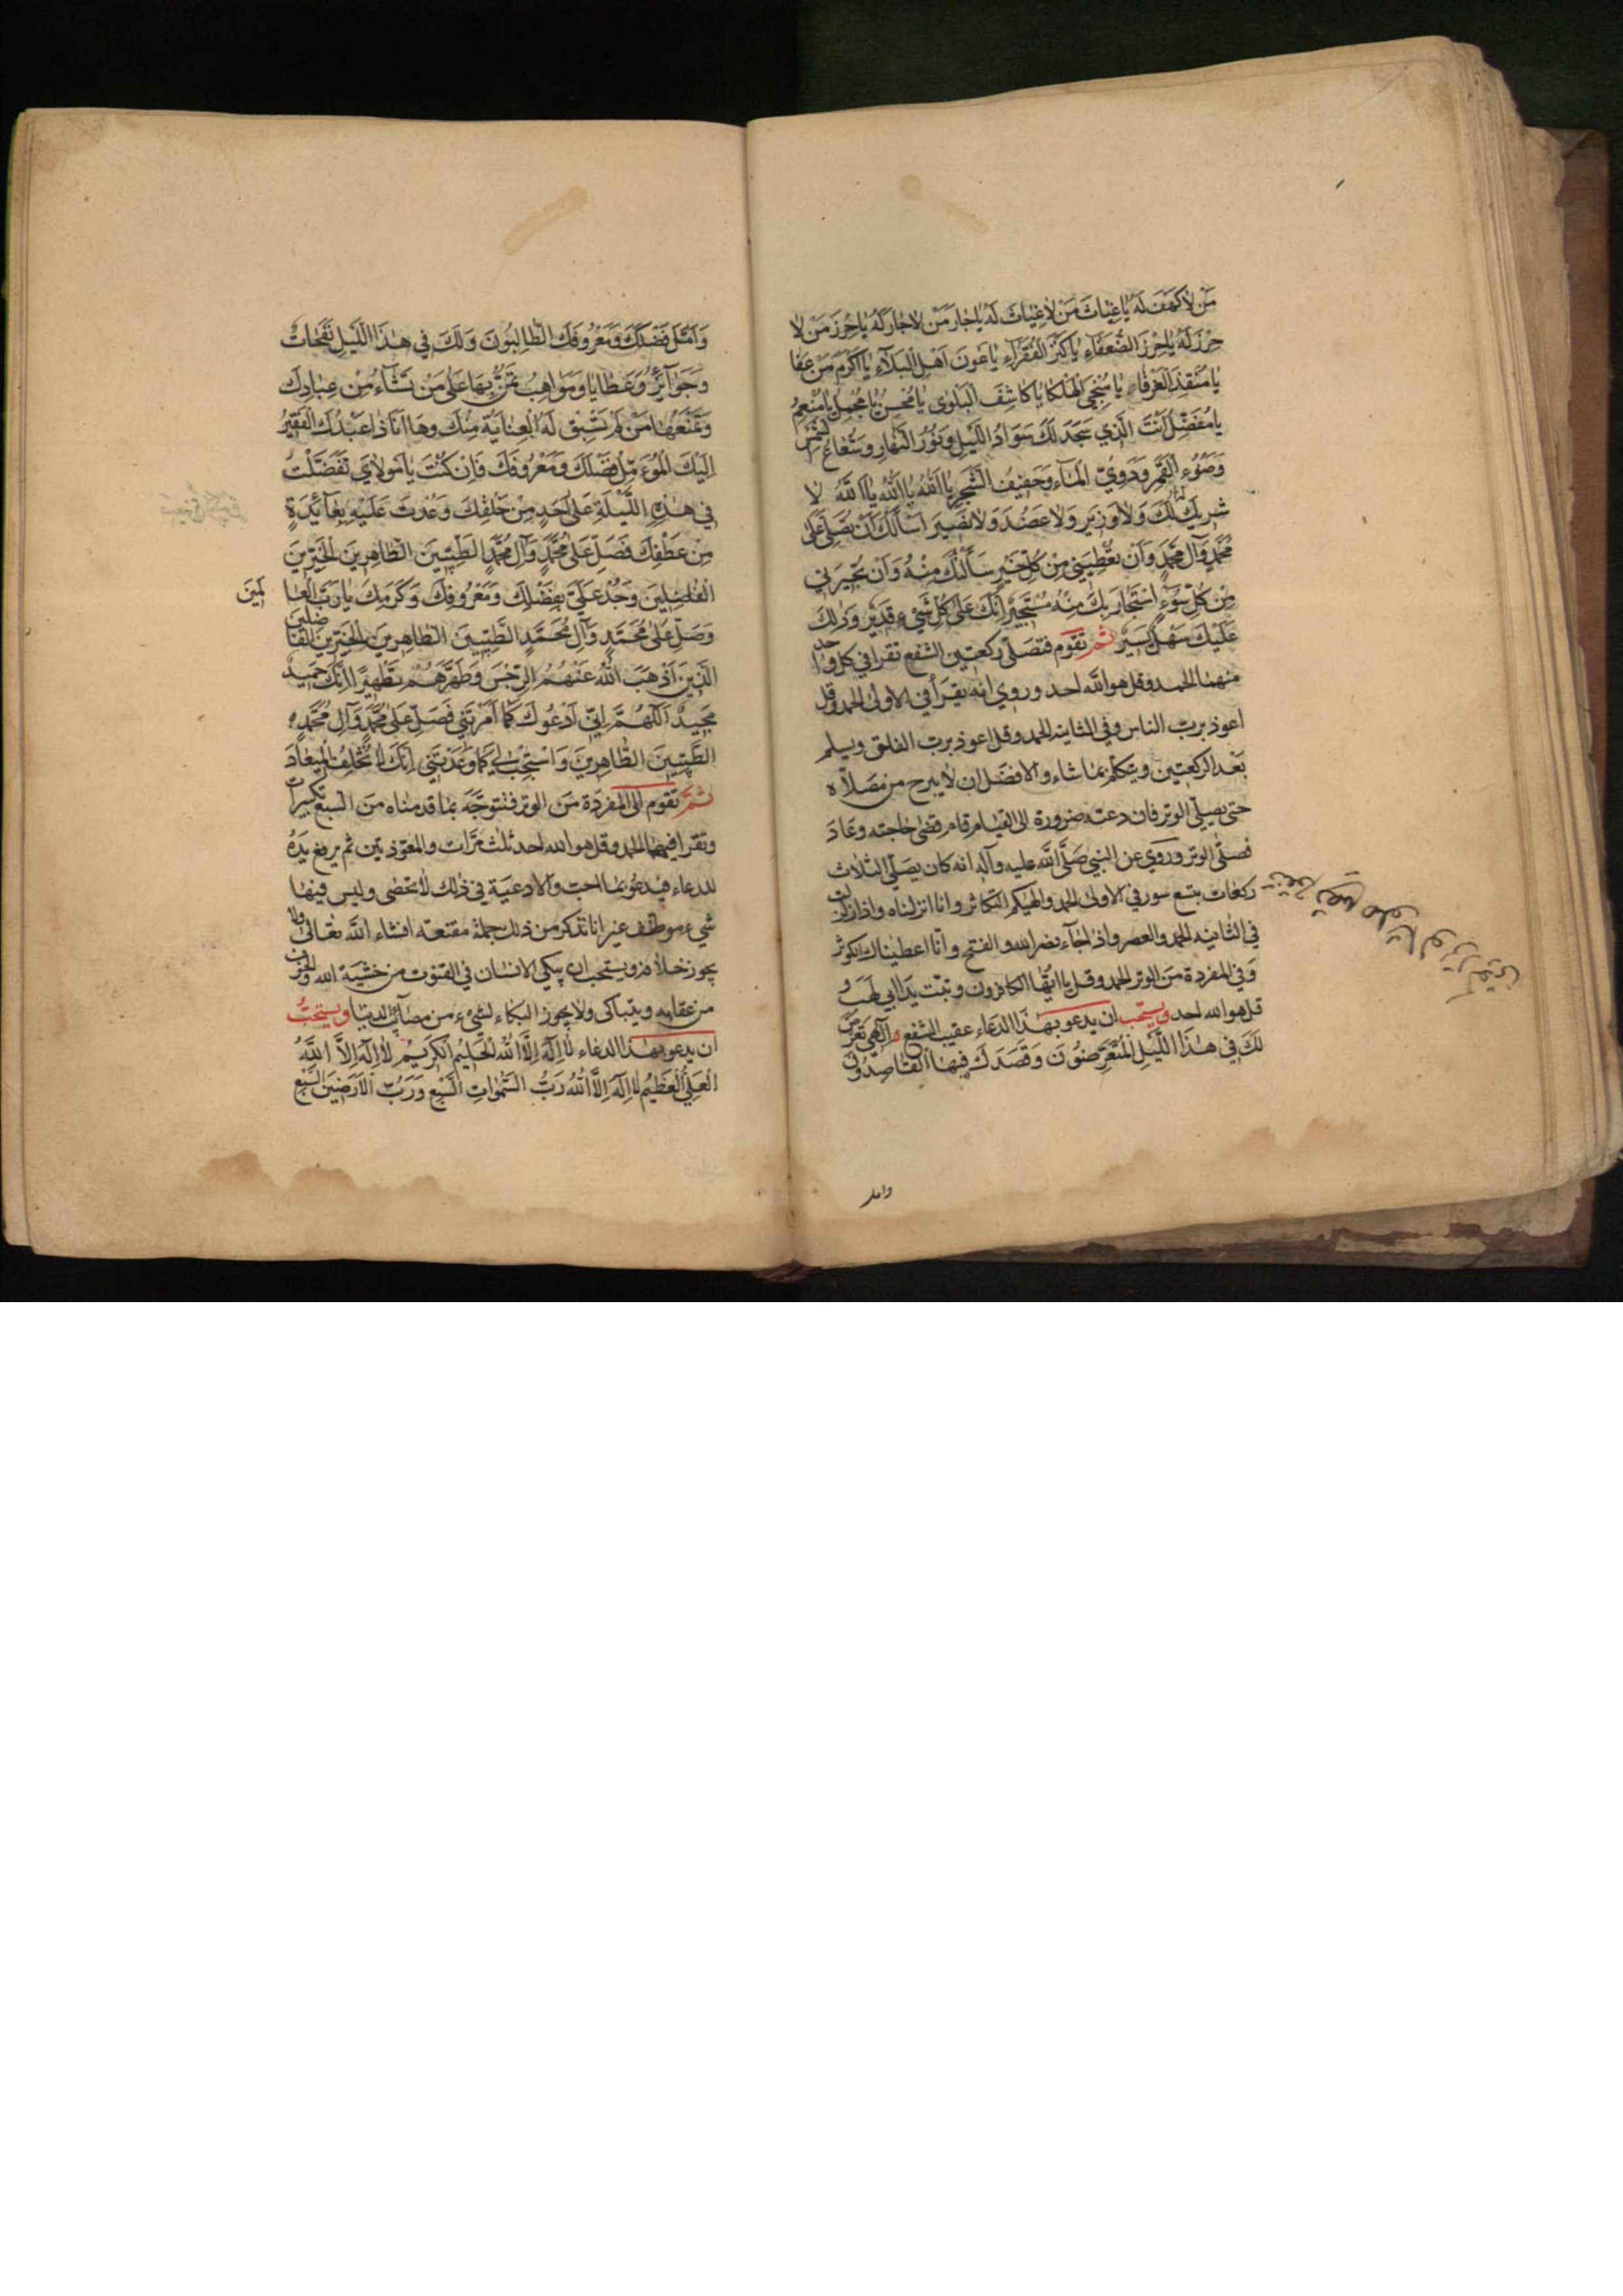 مَنْ لَا كَهْفَ لَهُ يَا غِيَاثَ مَنْ لَا غِيَاثَ لَهُ يَا جَارَ مَنْ لَا جَارَ لَهُ يَا حِرْزَ مَنْ لَا
حِرْزَ لَهُ يَا حِرْزَ الضُّعَفَاءِ يَا كَنْزَ الْفُقَرَاءِ يَا عَوْنَ اَهْلِ الْبَلَاءِ يَا اَكْرَمَ مَنْ عَفَا
يَا مُنْقِذَ الْغَرْقَاءِ يَا مُنْجِيَ الْهَلْكَا يَا كَاشِفَ الْبَلْوٰى يَا مُحْسِنُ يَا مُجْمِلُ يَا مُنْعِمُ
يَا مُفْضِلُ اَنْتَ الَّذِي سَجَدَ لَكَ سَوَادُ اللَّيْلِ وَنُورُ النَّهَارِ وَشُعَاعُ الشَّمْسِ
وَضَوْءُ الْقَمَرِ وَدَوِيُّ الْمَاءِ وَحَفِيفُ الشَّجَرِ يَا اَللّٰهُ يَا اَللّٰهُ يَا اَللّٰهُ لَا
شَرِيكَ لَكَ وَلَا وَزِيرَ وَلَا عَضُدَ وَلَا نَصِيرَ اَسْأَلُكَ اَنْ تُصَلِّيَ عَلٰى
مُحَمَّدٍ وَآلِ مُحَمَّدٍ وَاَنْ تُعْطِيَنِي مِنْ كُلِّ خَيْرٍ سَأَلَكَ مِنْهُ وَاَنْ تُجِيرَنِي
مِنْ كُلِّ سُوءٍ اسْتَجَارَ بِكَ مِنْهُ مُسْتَجِيرٌ اِنَّكَ عَلٰى كُلِّ شَيْءٍ قَدِيرٌ وَذٰلِكَ
عَلَيْكَ سَهْلٌ يَسِيرٌ ثم تقوم فتصلّى ركعتين الشفع تقرا في كل واحدة
منهما الحمد وقل هو الله احد وروي انه يقرأ في الاولى الحمد وقل
اعوذ برب الناس وفي الثانية الحمد وقل اعوذ برب الفلق ويسلم
بعد الركعتين ويتكلّم بما شاء والافضل ان لا يبرح من مصلّاه
حتى يصلّي الوتر فان دعته ضرورة الى القيام قام قضى حاجته وعاد
فصلّى الوتر وروي عن النبي صلّى الله عليه وآله انه كان يصلّي الثلاث
ركعات بتسع سور في الاولى الحمد والهيكم التكاثر وانا انزلناه واذا زلزلت
في الثانية الحمد والعصر واذا جاء نصر الله والفتح وانّا اعطيناك الكوثر
وفي المفردة من الوتر الحمد وقل يا ايّها الكافرون وتبّت يدا ابي لهب و
قل هو الله احد ويستحب ان يدعو بهذا الدعاء عقيب الشفع اِلٰهِي تَعَرَّضَ
لَكَ فِي هٰذَا اللَّيْلِ الْمُتَعَرِّضُونَ وَقَصَدَكَ فِيهَا الْقَاصِدُونَ
وامل
وَاَمَّلَ فَضْلَكَ وَمَعْرُوفَكَ الطَّالِبُونَ وَلَكَ فِي هٰذَا اللَّيْلِ نَفَحَاتٌ
وَجَوَائِزُ وَعَطَايَا وَمَوَاهِبُ تَمُنُّ بِهَا عَلٰى مَنْ تَشَاءُ مِنْ عِبَادِكَ
وَتَمْنَعُهَا مَنْ لَمْ تَسْبِقْ لَهُ الْعِنَايَةُ مِنْكَ وَهَا اَنَا ذَا عَبْدُكَ الْفَقِيرُ
اِلَيْكَ الْمُؤَمِّلُ فَضْلَكَ وَمَعْرُوفَكَ فَاِنْ كُنْتَ يَا مَوْلَايَ تَفَضَّلْتَ
فِي هٰذِهِ اللَّيْلَةِ عَلٰى اَحَدٍ مِنْ خَلْقِكَ وَعُدْتَ عَلَيْهِ بِعَائِدَةٍ
مِنْ عَطْفِكَ فَصَلِّ عَلٰى مُحَمَّدٍ وَآلِ مُحَمَّدٍ الطَّيِّبِينَ الطَّاهِرِينَ الْخَيِّرِينَ
الْفَاضِلِينَ وَجُدْ عَلَيَّ بِفَضْلِكَ وَمَعْرُوفِكَ وَكَرَمِكَ يَا رَبَّ الْعَالَمِينَ
وَصَلِّ عَلٰى مُحَمَّدٍ وَآلِ مُحَمَّدٍ الطَّيِّبِينَ الطَّاهِرِينَ الْخَيِّرِينَ الْفَاضِلِينَ
الَّذِينَ اَذْهَبَ اللّٰهُ عَنْهُمُ الرِّجْسَ وَطَهَّرَهُمْ تَطْهِيرًا اِنَّكَ حَمِيدٌ
مَجِيدٌ اَللّٰهُمَّ اِنِّي اَدْعُوكَ كَمَا اَمَرْتَنِي فَصَلِّ عَلٰى مُحَمَّدٍ وَآلِ مُحَمَّدٍ
الطَّيِّبِينَ الطَّاهِرِينَ وَاسْتَجِبْ لِي كَمَا وَعَدْتَنِي اِنَّكَ لَا تُخْلِفُ الْمِيعَادَ
ثم تقوم الى المفردة من الوتر فتتوجّه بما قدمناه من السبع تكبيرات
وتقرا فيها الحمد وقل هو الله احد ثلث مرّات والمعوّذتين ثم يرفع يده
للدعاء فيدعو بما احب والادعية في ذلك لا تحصى وليس فيها
شيء موظف غير انا نذكر من ذلك جملة مقنعة انشاء الله تعالى ولا
يجوز خلافه ويستحب ان يبكي الانسان في القنوت من خشية الله والخوف
من عقابه ويتباكى ولا يجوز البكاء لشيء من مصائب الدنيا ويستحبّ
ان يدعو بهذا الدعاء لَا اِلٰهَ اِلَّا اللّٰهُ الْحَلِيمُ الْكَرِيمُ لَا اِلٰهَ اِلَّا اللّٰهُ
الْعَلِيُّ الْعَظِيمُ لَا اِلٰهَ اِلَّا اللّٰهُ رَبُّ السَّمٰوَاتِ السَّبْعِ وَرَبُّ الْاَرَضِينَ السَّبْعِ